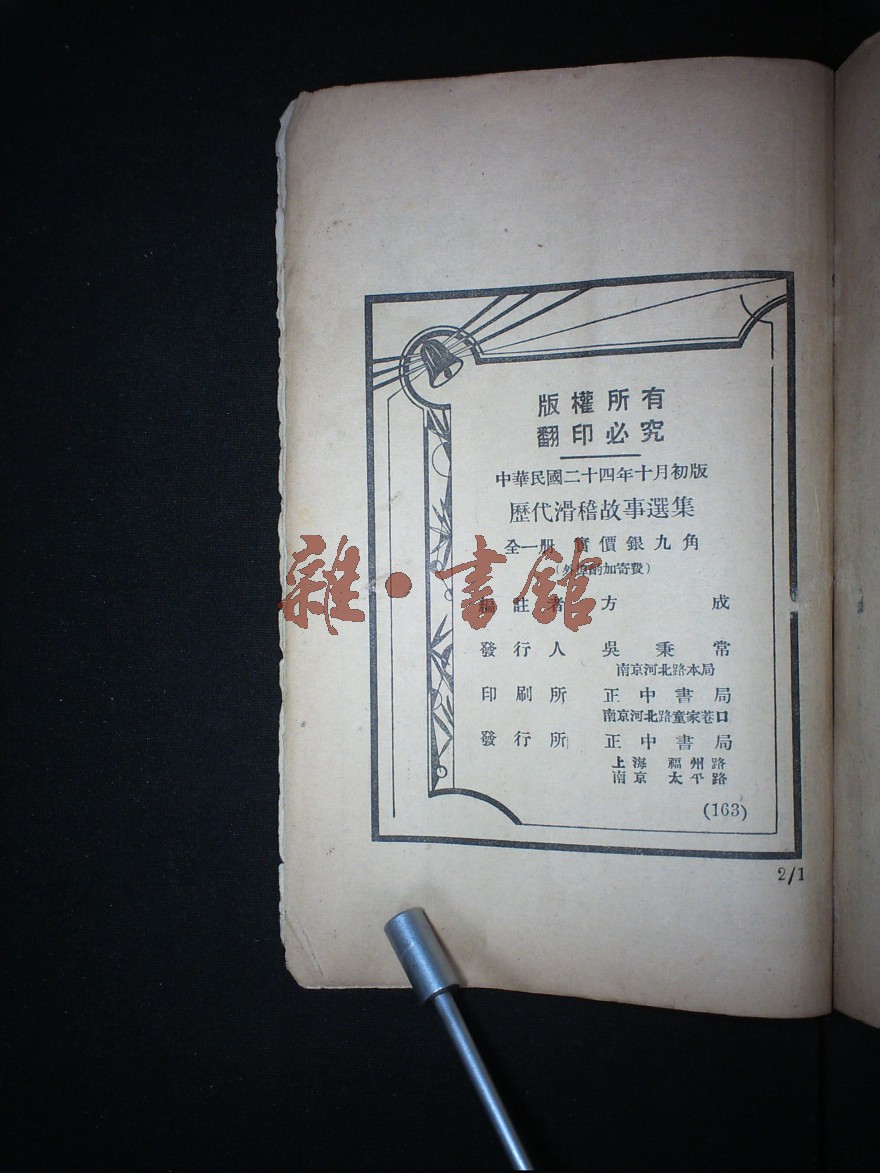 版權所有
翻印必究
中華民國二十四年十月初版
歷代滑稽故事選集
全一册 實價銀九角
(外埠酌加寄費)
編註者 方成
發行人 吳秉常
南京河北路本局
印刷所 正中書局
南京河北路童家巷口
發行所 正中書局
上海 福州路
南京 太平路
(163)
2/1
雜·書館